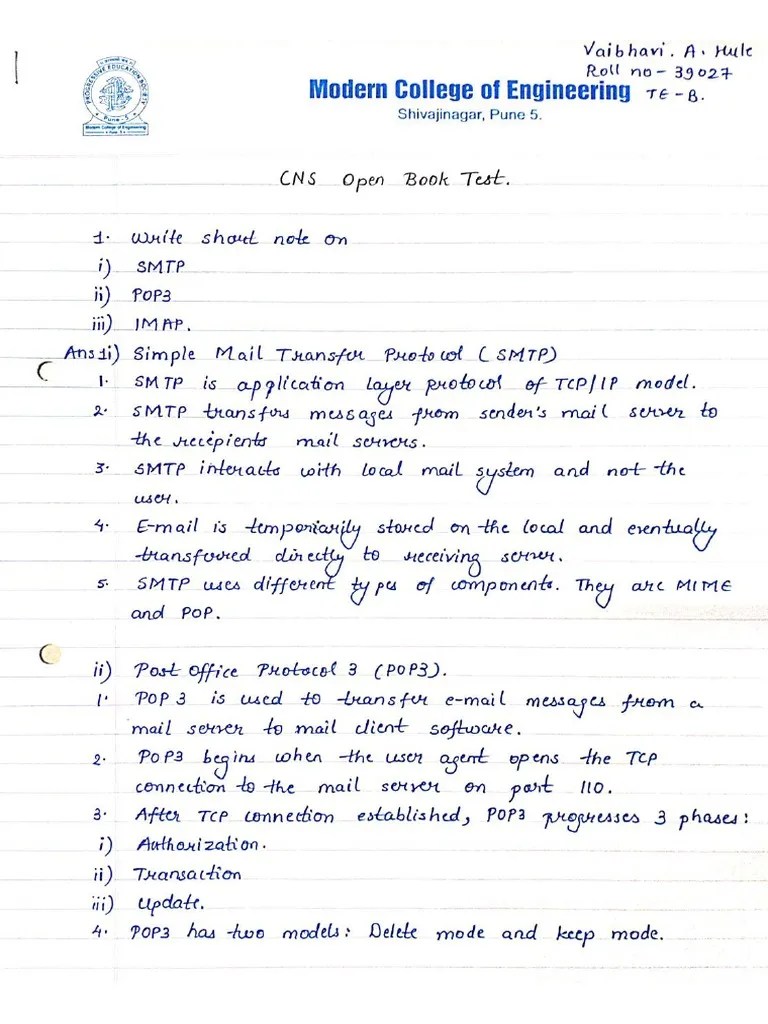 Vaibhavi. A. Hule
Roll no - 39027
TE - B.
PROGRESSIVE EDUCATION SOCIETY
Pune - 5
Modern College of Engineering
Modern College of Engineering
Shivajinagar, Pune 5.
CNS Open Book Test.
1. Write short note on
i) SMTP
ii) POP3
iii) IMAP.
Ans 1i) Simple Mail Transfer Protocol (SMTP)
1. SMTP is application layer protocol of TCP/IP model.
2. SMTP transfers messages from sender's mail server to
the recipients mail servers.
3. SMTP interacts with local mail system and not the
user.
4. E-mail is temporiarily stored on the local and eventually
transferred directly to receiving server.
5. SMTP uses different types of components. They are MIME
and POP.
ii) Post Office Protocol 3 (POP3).
1. POP 3 is used to transfer e-mail messages from a
mail server to mail client software.
2. POP3 begins when the user agent opens the TCP
connection to the mail server on port 110.
3. After TCP connection established, POP3 progresses 3 phases:
i) Authorization.
ii) Transaction
iii) Update.
4. POP3 has two models: Delete mode and keep mode.